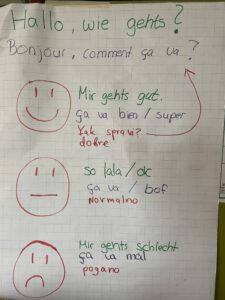 Hallo, wie gehts?
Bonjour, comment ça va ?
Mir gehts gut.
ça va bien / super
Yak spravi?
dobre
so lala / ok
ça va / bof
Normalno
Mir gehts schlecht
ça va mal
pogano